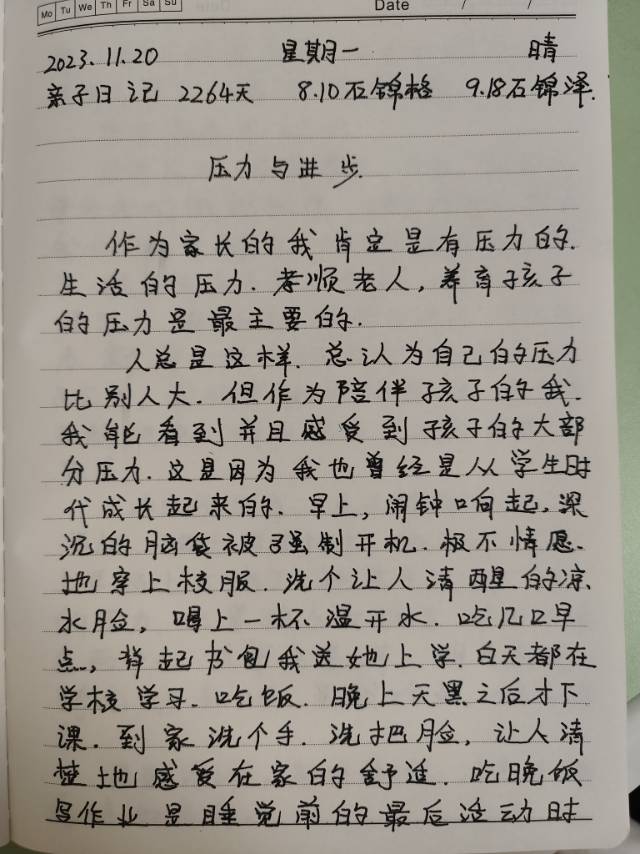 Mo Tu We Th Fr Sa Su Date / /
2023.11.20 星期一 晴
亲子日记 2264天 8.10石锦格 9.18石锦泽.
压力与进步.
作为家长的我肯定是有压力的.
生活的压力.孝顺老人,养育孩子
的压力是最主要的.
人总是这样.总认为自己的压力
比别人大.但作为陪伴孩子的我.
我能看到并且感受到孩子的大部
分压力.这是因为我也曾经是从学生时
代成长起来的.早上,闹钟响起.深
沉的脑袋被强制开机.极不情愿.
地穿上校服.洗个让人清醒的凉.
水脸,喝上一杯温开水.吃几口早
点,背起书包我送她上学.白天都在
学校学习.吃饭.晚上天黑之后才下
课.到家洗个手.洗把脸,让人清
楚地感受在家的舒适.吃晚饭
写作业是睡觉前的最后活动时